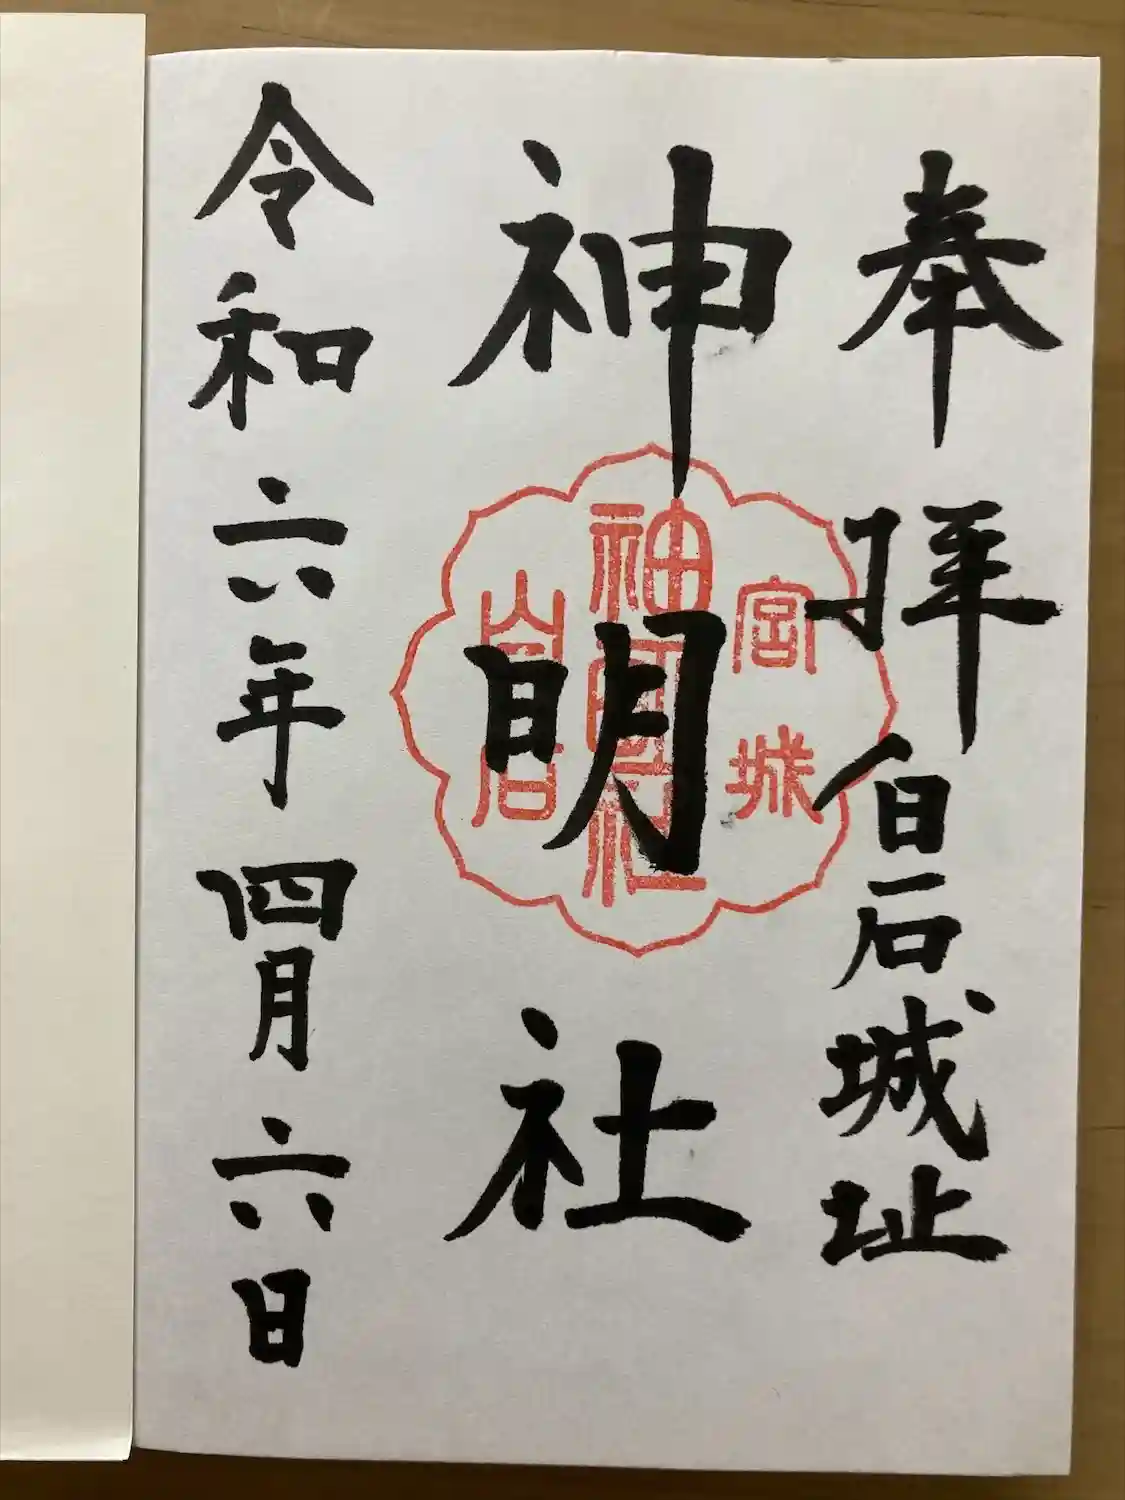 奉拝 白石城址
神明社
宮城
神明社
令和六年四月六日